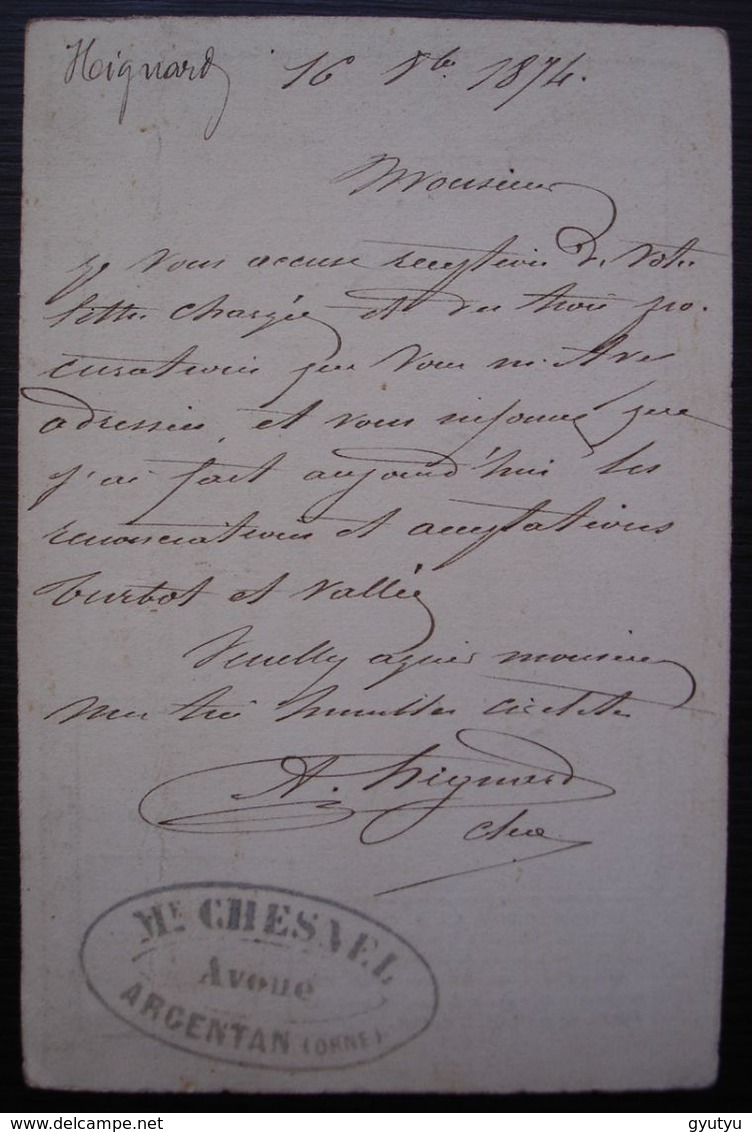 Hignard 16 8bre 1874.
Monsieur
Je vous accuse reception de votre
lettre chargée et des trois pro-
curations que vous m'avez
adressées, et vous informe que
j'ai fait aujourd'hui les
renonciations et acceptations
Turbot et Vallée
Veuillez agréer monsieur
mes très humbles civilités
A. Hignard
Me CHESNEL
Avoué
ARGENTAN (ORNE)
www.delcampe.net
gyutyu